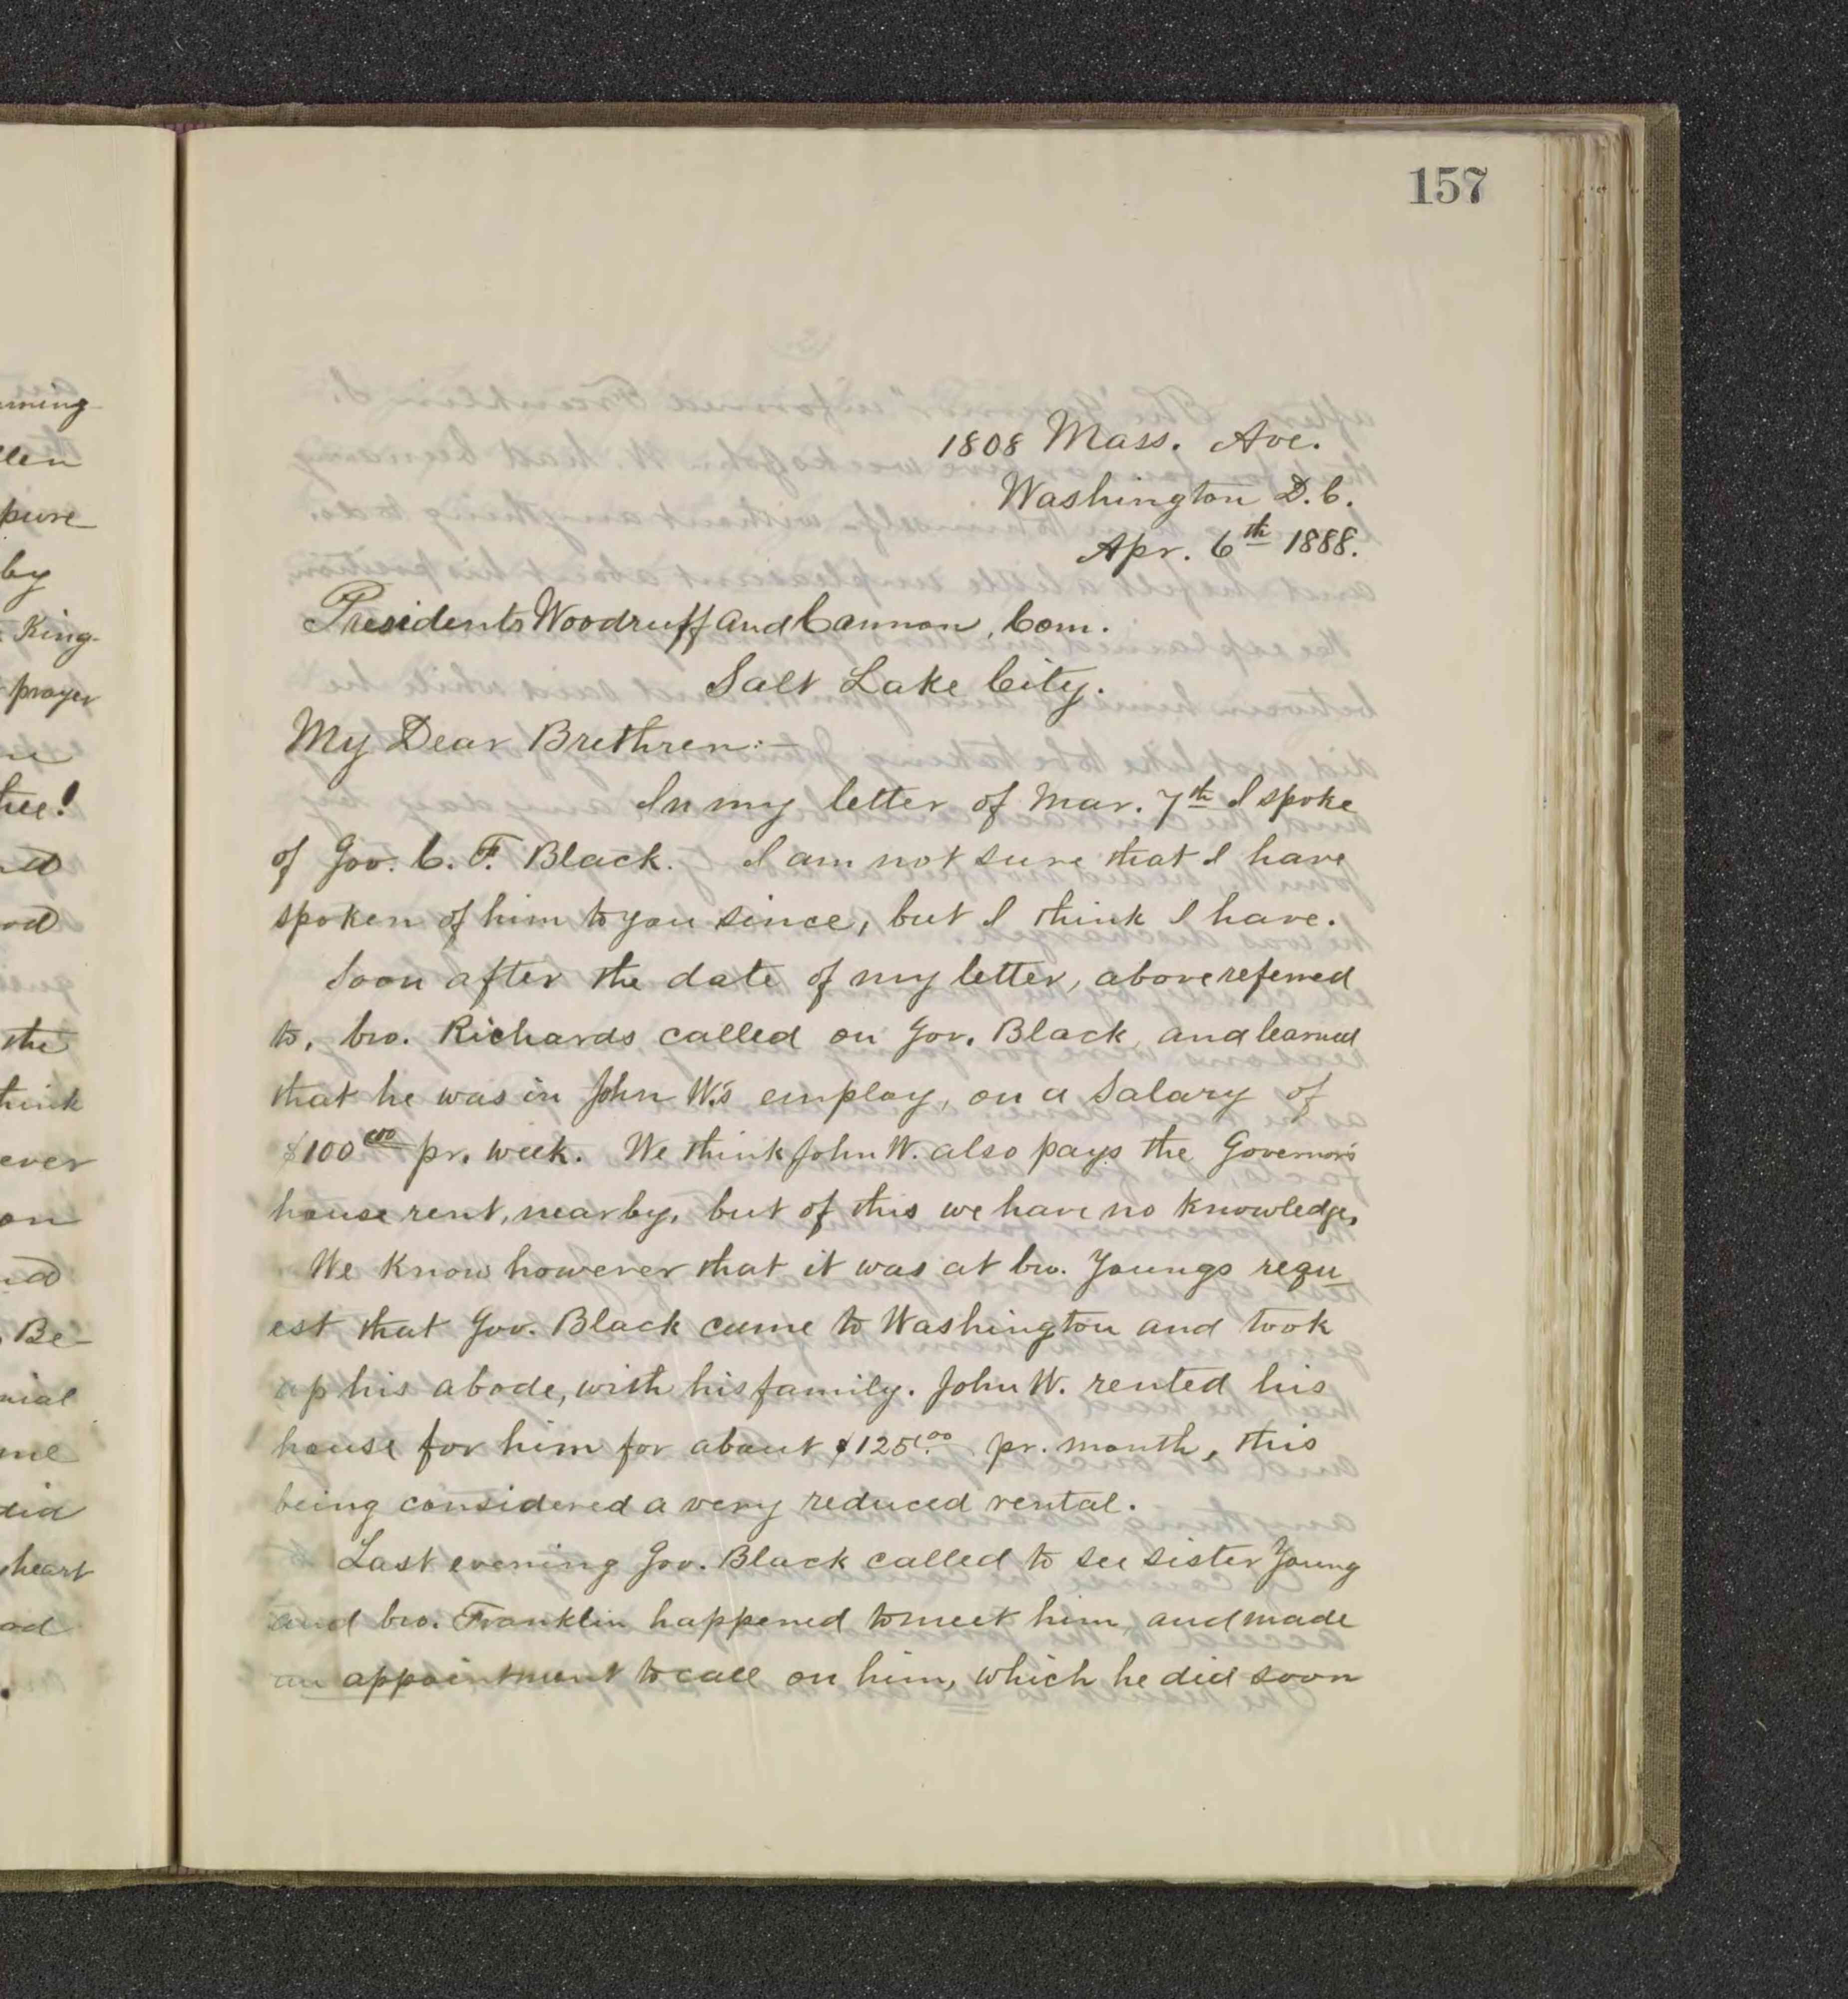 157
1808 Mass. Ave.
Washington D.C.
Apr. 6th 1888.
Presidents Woodruff and Cannon, Com.
Salt Lake City.
My Dear Brethren:-
In my letter of Mar. 7th I spoke
of Gov. C. F. Black. I am not sure that I have
spoken of him to you since, but I think I have.
Soon after the date of my letter, above referred
to, bro. Richards called on Gov. Black, and learned
that he was in John W's employ, on a Salary of
$100 00 pr. week. We think John W. also pays the Governor's
house rent, nearby, but of this we have no knowledge,
We know however that it was at bro. Youngs requ
est that Gov. Black came to Washington and took
up his abode, with his family. John W. rented his
house for him for about $125.00 pr. month, this
being considered a very reduced rental.
Last evening Gov. Black called to see sister Young
and bro. Franklin happened to meet him, and made
an appointment to call on him, which he did soon
uming
len
pure
by
King-
prayer
tree!
od
the
think
ever
on
Be-
me
did
heart
od